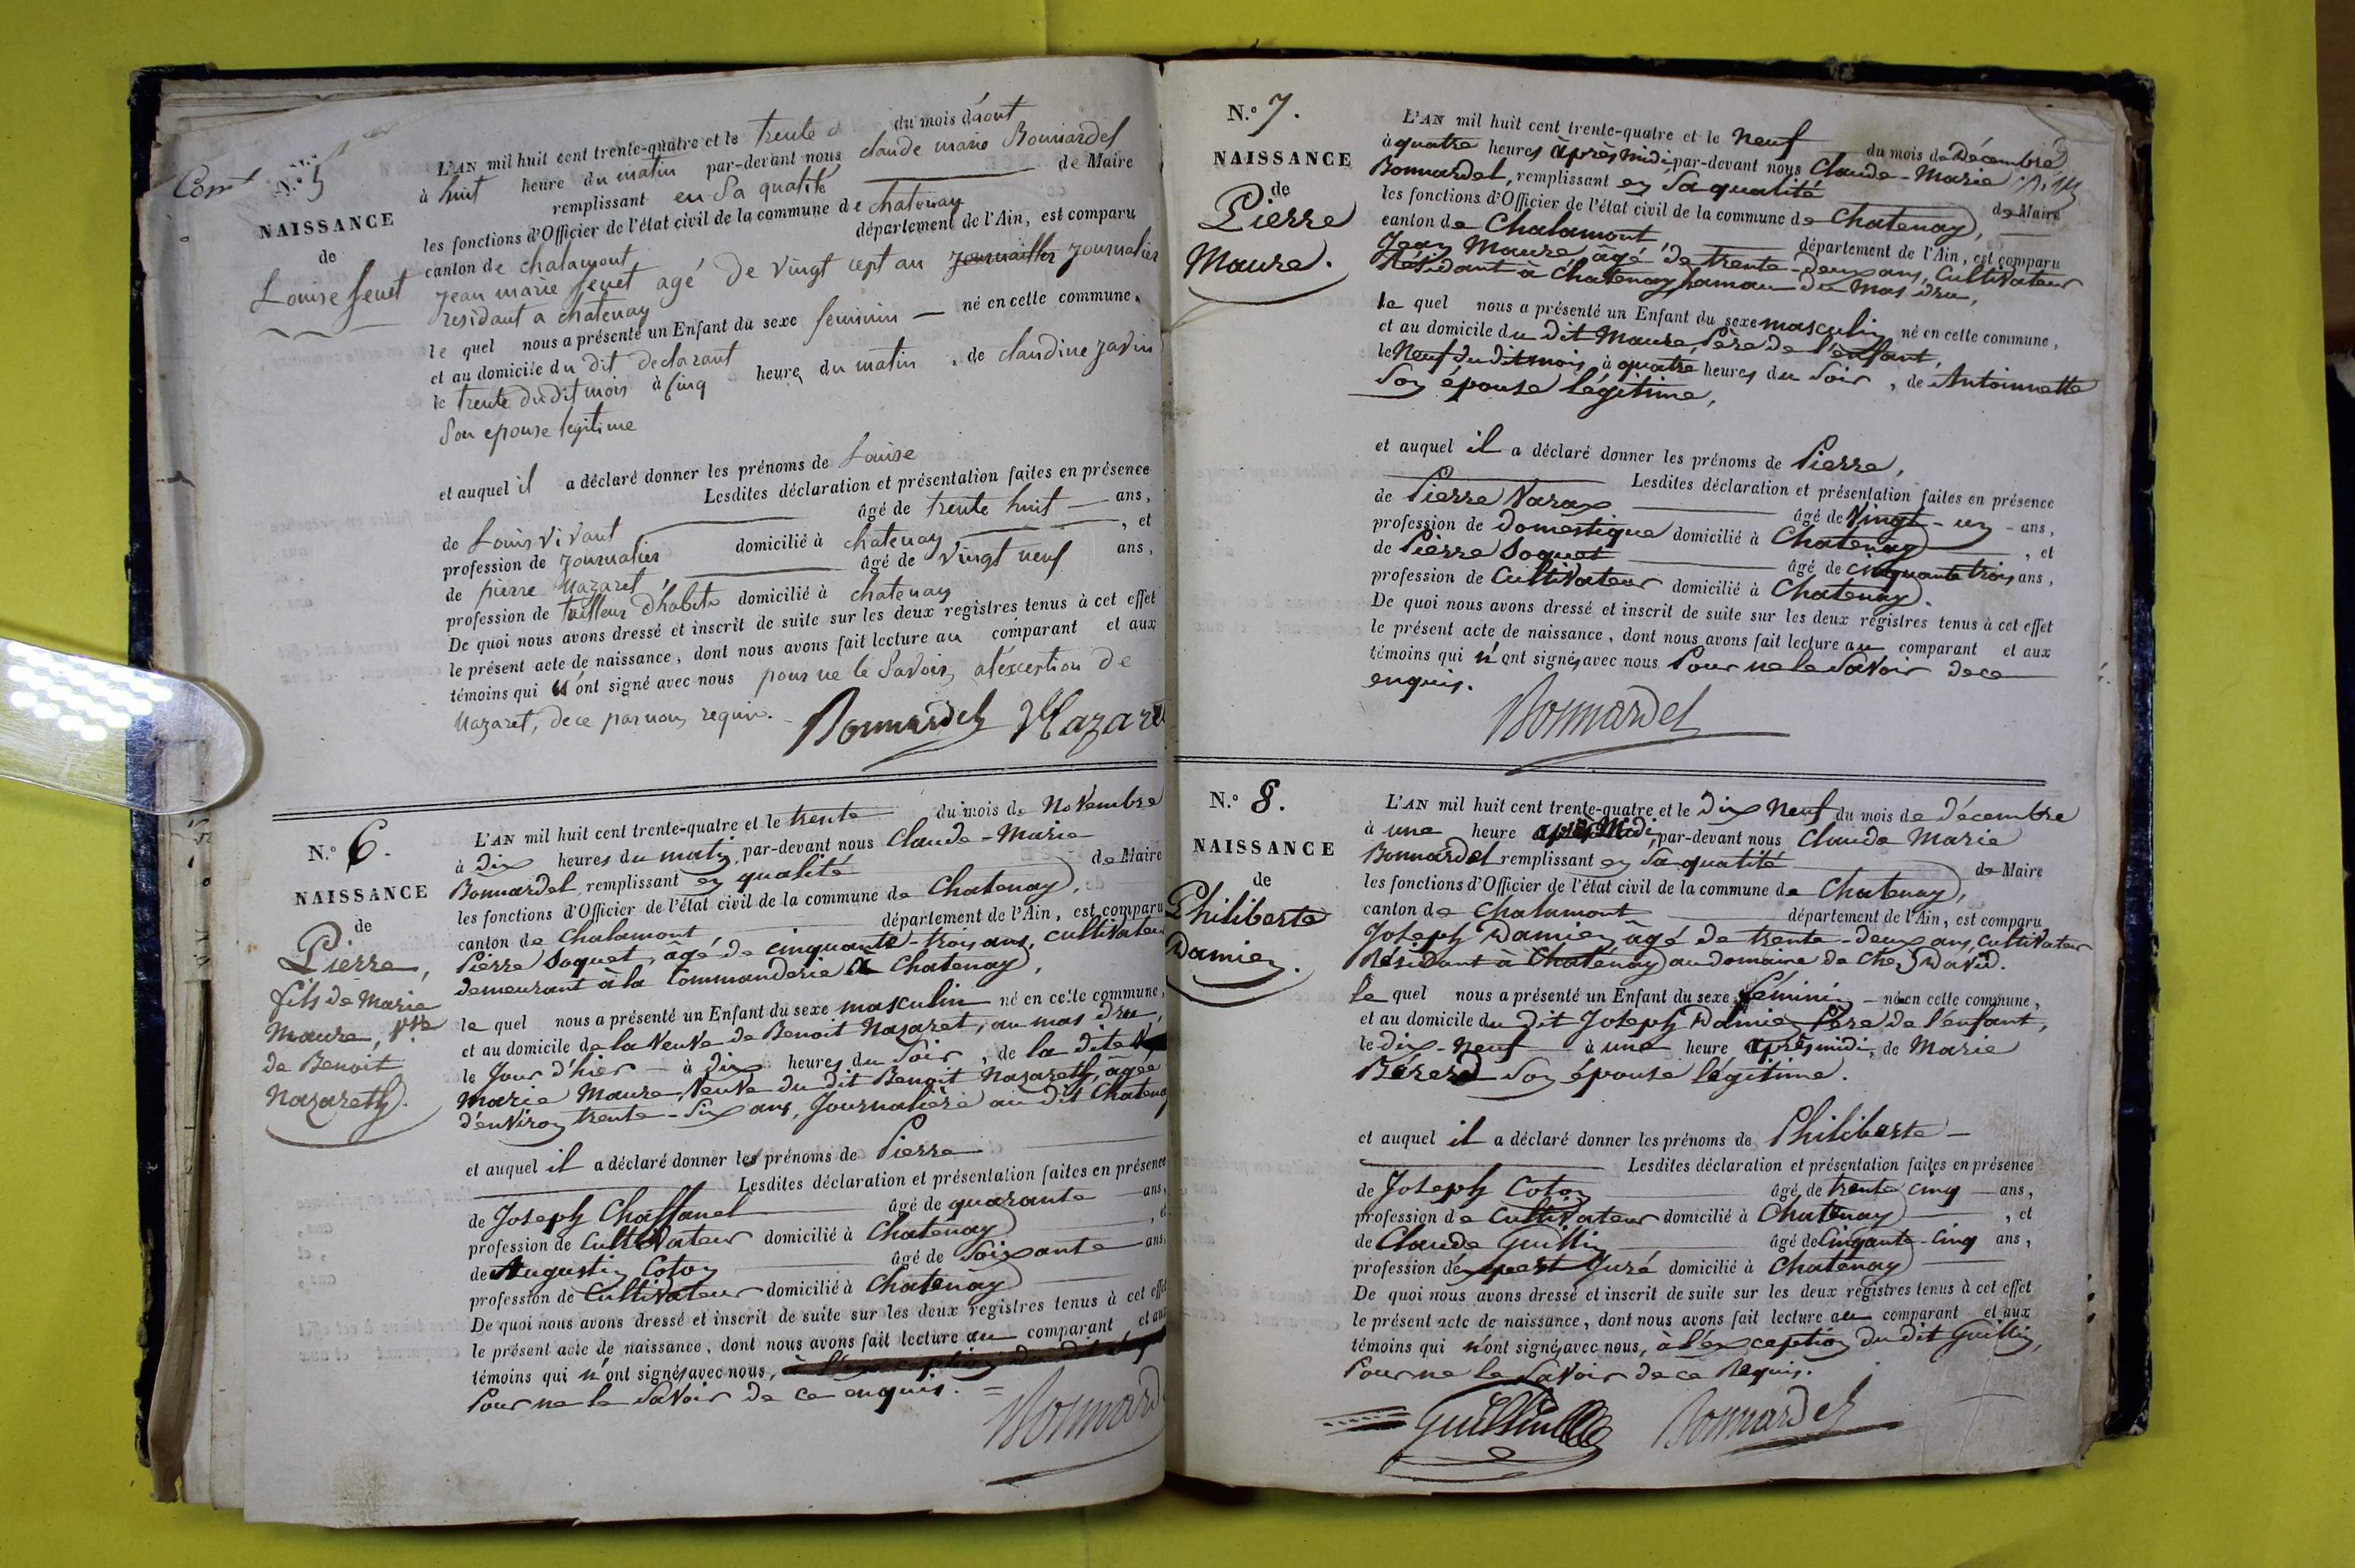 Comt
N.º 5
NAISSANCE
de
Louise Jenet
L'AN mil huit cent trente-quatre et le trente du mois d'aout
à huit heure du matin par-devant nous claude marie Bonnardel
remplissant en sa qualité de Maire
les fonctions d'Officier de l'état civil de la commune de chatenay
canton de chalamont département de l'Ain, est comparu
jean marie Jenet agé de vingt sept an journalier
residant a chatenay
le quel nous a présenté un Enfant du sexe feminin né en cette commune,
et au domicile du dit declarant
le trente dudit mois à cinq heure du matin, de claudine
son epouse legitime
et auquel il a déclaré donner les prénoms de Louise
Lesdites déclaration et présentation faites en présence
de Louis vivant âgé de trente huit ans,
profession de journalier domicilié à chatenay, et
de pierre Nazaret âgé de vingt neuf ans,
profession de tailleur d'habits domicilié à chatenay
De quoi nous avons dressé et inscrit de suite sur les deux registres tenus à cet effet
le présent acte de naissance, dont nous avons fait lecture au comparant et aux
témoins qui n'ont signé avec nous pour ne le savoir, a l'exception de
Nazaret, de ce par nous requis.
Bonnardel Nazaret
N.º 6.
NAISSANCE
de
Pierre,
fils de Marie
Maure, vve
de Benoit
Nazareth.
L'AN mil huit cent trente-quatre et le trente du mois de Novembre
à dix heures du matin, par-devant nous Claude-Marie
Bonnardel, remplissant en qualité de Maire
les fonctions d'Officier de l'état civil de la commune de Chatenay,
canton de Chalamont, département de l'Ain, est comparu
Pierre Soquet, âgé de cinquante-trois ans, cultivateur
demeurant à la Commanderie à Chatenay,
le quel nous a présenté un Enfant du sexe masculin né en cette commune,
et au domicile de la Veuve de Benoit Nazaret, au mas dru,
le Jour d'hier à dix heures du soir, de la dite
Marie Maure, Veuve du dit Benoit Nazareth, âgée
d'environ trente-six ans, Journalière au dit Chatenay
et auquel il a déclaré donner les prénoms de Pierre
Lesdites déclaration et présentation faites en présence
de Joseph Chassanel âgé de quarante ans,
profession de Cultivateur domicilié à Chatenay, et
de Augustin Coton âgé de Soixante ans
profession de Cultivateur domicilié à Chatenay
De quoi nous avons dressé et inscrit de suite sur les deux registres tenus à cet effet
le présent acte de naissance, dont nous avons fait lecture au comparant et aux
témoins qui n'ont signés avec nous, à l'exception du dit
Pour ne le savoir de ce enquis.
Bonnard
N.º 7.
NAISSANCE
de
Pierre
Maure.
L'AN mil huit cent trente-quatre et le Neuf du mois de Décembre
à quatre heures après midi, par-devant nous Claude-Marie
Bonnardel, remplissant en sa qualité de Maire
les fonctions d'Officier de l'état civil de la commune de Chatenay,
canton de Chalamont, département de l'Ain, est comparu
Jean Maure, âgé de trente-deux ans, Cultivateur
Résidant à Chatenay hamau du Mas dru,
le quel nous a présenté un Enfant du sexe masculin né en cette commune,
et au domicile du dit Maure, Père de l'enfant,
le Neuf du dit mois, à quatre heures du Soir, de Antoinnette
Son épouse légitime,
et auquel il a déclaré donner les prénoms de Pierre,
Lesdites déclaration et présentation faites en présence
de Pierre Narax âgé de Vingt-un ans,
profession de domestique domicilié à Chatenay, et
de Pierre Soquet âgé de cinquante trois ans,
profession de Cultivateur domicilié à Chatenay.
De quoi nous avons dressé et inscrit de suite sur les deux régistres tenus à cet effet
le présent acte de naissance, dont nous avons fait lecture au comparant et aux
témoins qui n'ont signés avec nous Pour ne le savoir de ce
enquis.
Bonnardel
N.º 8.
NAISSANCE
de
Philiberte
Damien.
L'AN mil huit cent trente-quatre et le Dix Neuf du mois de décembre
à une heure après Midi, par-devant nous Claude Marie
Bonnardel remplissant en sa qualité de Maire
les fonctions d'Officier de l'état civil de la commune de Chatenay,
canton de Chalamont département de l'Ain, est comparu
Joseph Damien, âgé de trente-deux ans, Cultivateur
Résidant à Chatenay au domaine de Chez David.
le quel nous a présenté un Enfant du sexe féminin né en cette commune,
et au domicile du dit Joseph Damien Père de l'enfant,
le dix-neuf à une heure après midi, de Marie
Bérerd Son épouse légitime.
et auquel il a déclaré donner les prénoms de Philiberte
Lesdites déclaration et présentation faites en présence
de Joseph Coton âgé de trente cinq ans,
profession de Cultivateur domicilié à Chatenay, et
de Claude Guillin âgé de Cinqante-cinq ans,
profession d'expert Juré domicilié à Chatenay
De quoi nous avons dressé et inscrit de suite sur les deux régistres tenus à cet effet
le présent acte de naissance, dont nous avons fait lecture au comparant et aux
témoins qui n'ont signés avec nous, à l'exception du dit Guillin,
Pour ne le savoir de ce Requis.
Guillin Bonnardel